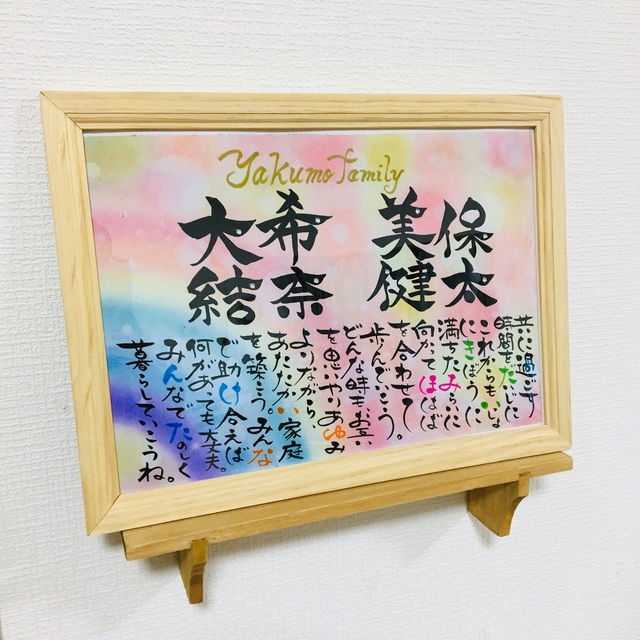 Yakumo Family
保太
美健
希奈
大結
共に過ごす
時間をだいじに
これからもいっしょ
にきぼうに
満ちたみらいに
向かってほはば
を合わせて
歩んでいこう。
どんな時もお互い
を思いやりあゆみ
よりながら
あたたかい家庭
を築こう。みんな
で助け合えば
何があっても大丈夫。
みんなでたのしく
暮らしていこうね。